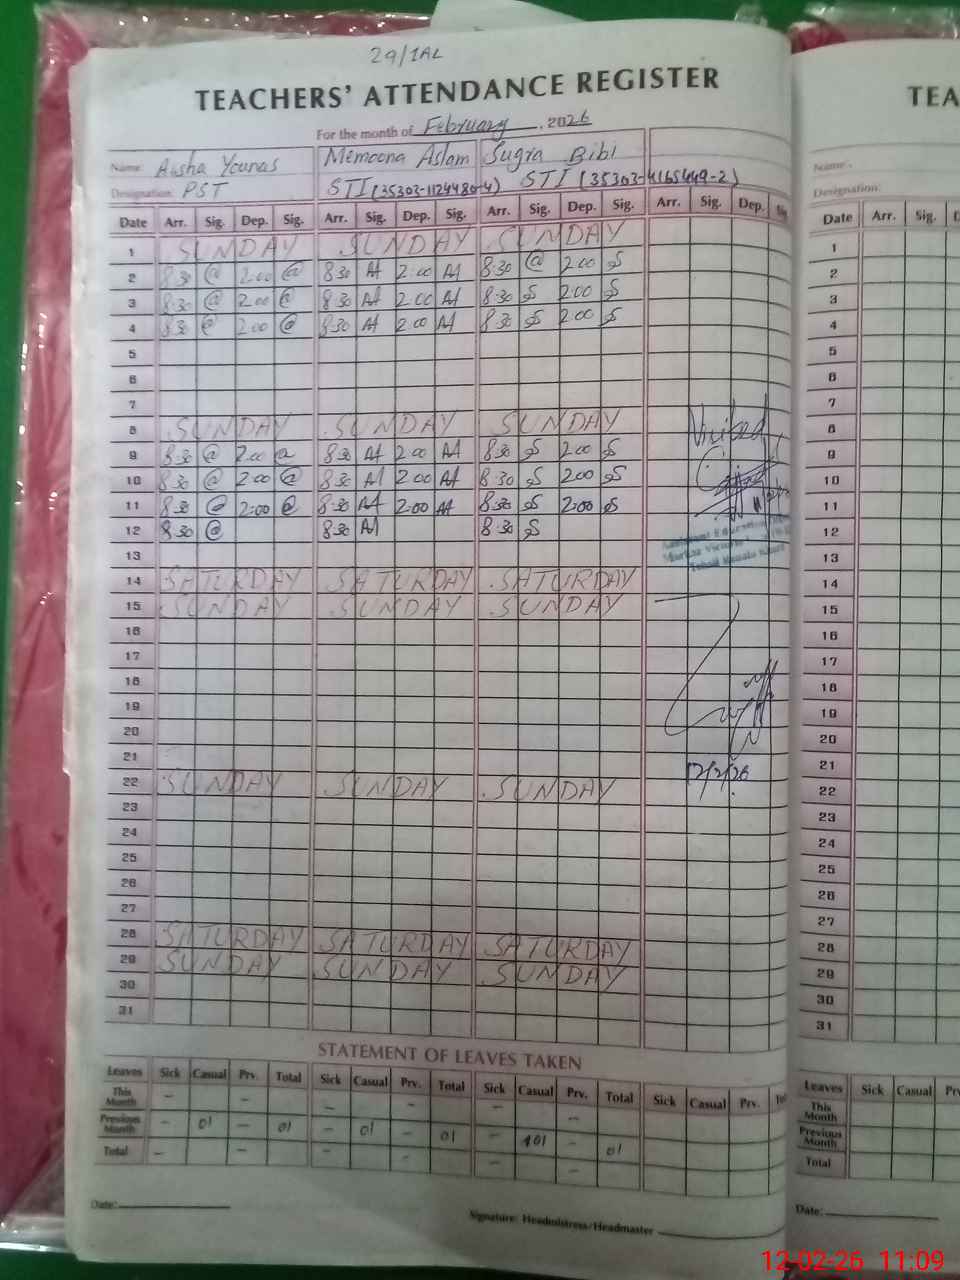 29/1AL
TEACHERS' ATTENDANCE REGISTER
For the month of February, 2026
Name: Aisha Younas Memoona Aslam Sugra Bibi
Designation: PST STI (35303-1124480-4) STI (35303-4165449-2)
Date Arr. Sig. Dep. Sig. Arr. Sig. Dep. Sig. Arr. Sig. Dep. Sig. Arr. Sig. Dep.
1 SUNDAY SUNDAY SUNDAY
2 8:30 @ 2:00 @ 8:30 AA 2:00 AA 8:30 @ 2:00 S
3 8:30 @ 2:00 @ 8:30 AA 2:00 AA 8:30 S 2:00 S
4 8:30 @ 2:00 @ 8:30 AA 2:00 AA 8:30 S 2:00 S
5
6
7
8 SUNDAY SUNDAY SUNDAY
9 8:30 @ 2:00 @ 8:30 AA 2:00 AA 8:30 S 2:00 S
10 8:30 @ 2:00 @ 8:30 AA 2:00 AA 8:30 S 2:00 S
11 8:30 @ 2:00 @ 8:30 AA 2:00 AA 8:30 S 2:00 S
12 8:30 @ 8:30 AA 8:30 S
13
14 SATURDAY SATURDAY SATURDAY
15 SUNDAY SUNDAY SUNDAY
16
17
18
19
20
21
22 SUNDAY SUNDAY SUNDAY
23
24
25
26
27
28 SATURDAY SATURDAY SATURDAY
29 SUNDAY SUNDAY SUNDAY
30
31
Visited
Assistant Education
Markaz
Tehsil
12/2/26
STATEMENT OF LEAVES TAKEN
Leaves Sick Casual Prv. Total Sick Casual Prv. Total Sick Casual Prv. Total Sick Casual Prv.
This Month - - - - - -
Previous Month - 01 - 01 - 01 - 01 - 01 - 01
Total - - - - - -
Date:
Signature: Headmistress/Headmaster
TEA
Name:
Designation:
Date Arr. Sig.
1
2
3
4
5
6
7
8
9
10
11
12
13
14
15
16
17
18
19
20
21
22
23
24
25
26
27
28
29
30
31
Leaves Sick Casual
This Month
Previous Month
Total
Date:
12-02-26 11:09